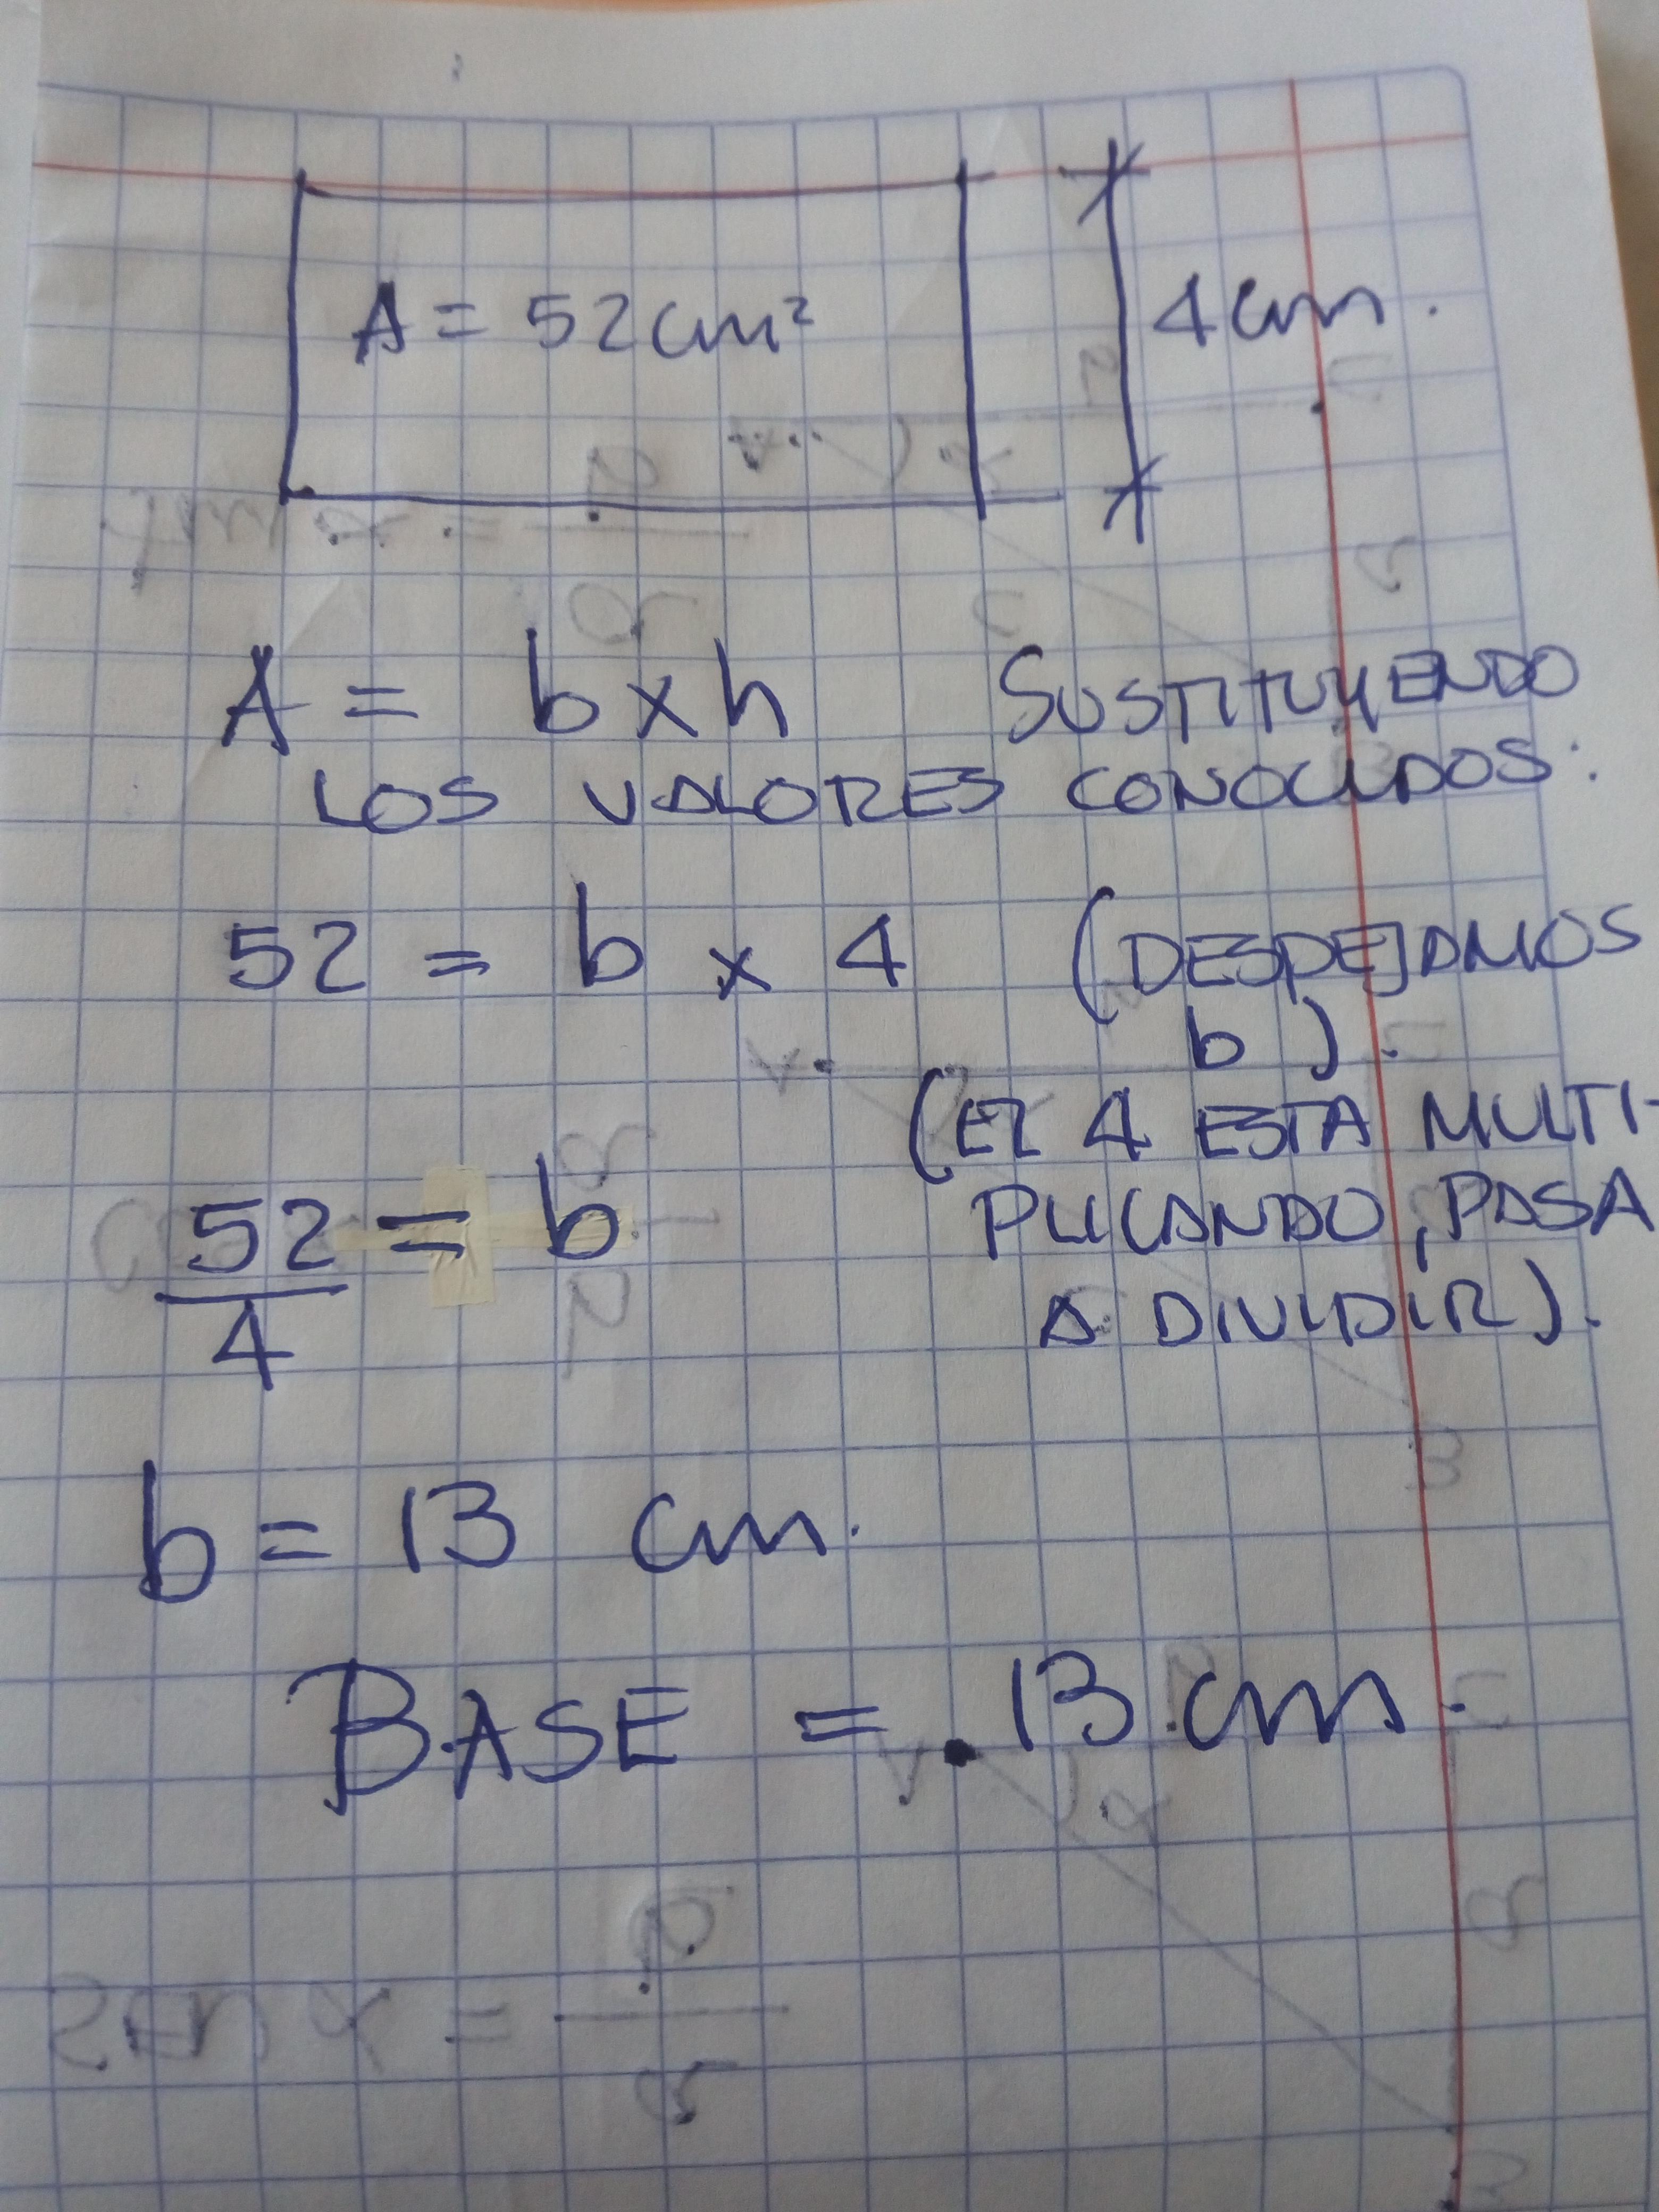 A = 52 cm²
4 cm.
A = b x h SUSTITUYENDO
LOS VALORES CONOCIDOS:
52 = b x 4 (DESPEJAMOS
b).
(EL 4 ESTA MULTI-
52/4 = b PLICANDO, PASA
A DIVIDIR).
b = 13 cm.
BASE = 13 cm.